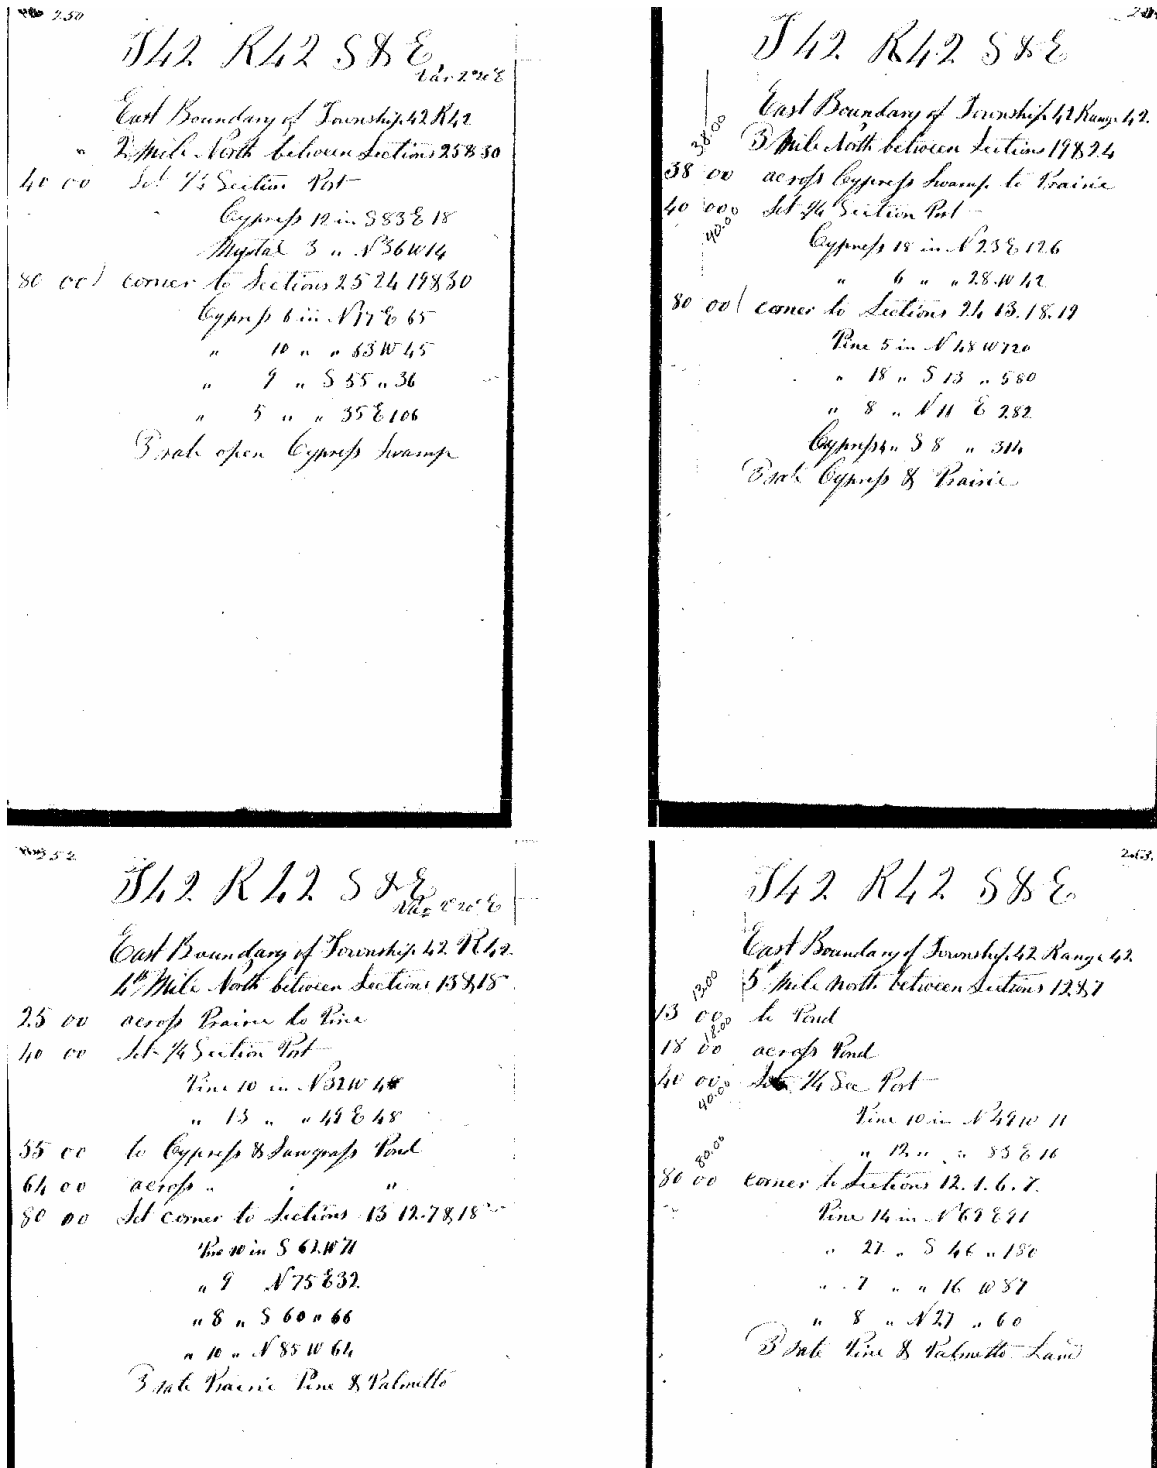 250
T42 R42 S & E
Var 2°20'E
East Boundary of Township 42 R42
" 2 Mile North between Sections 25 & 30
40 00 Set 1/4 Section Post
Cypress 12 in S83E18
3 " N36W14
80 00 corner to Sections 25 24 19 & 30
Cypress 6 in N17E 65
" 10 " " 63W45
" 9 " S 55 " 36
" 5 " " 35E106
3 rate open Cypress Swamp
T42 R42 S & E
East Boundary of Township 42 Range 42.
3 Mile North between Sections 19 & 24
38.00
38 00 across Cypress Swamp to Prairie
40 00 Set 1/4 Section Post
40.00
Cypress 18 in N23E126
" 6 " " 28.W42
80 00 corner to Sections 24 13.18.19
Pine 5 in N48W720
" 18 " S 13 " 580
" 8 " N11 E 282
Cypress 4 " S 8 " 314
3 rate Cypress & Prairie
252
T42 R42 S & E
Var 2°20'E
East Boundary of Township 42 R42.
4th Mile North between Sections 13 & 18
25 00 across Prairie to Pine
40 00 Set 1/4 Section Post
Pine 10 in N32W48
" 13 " " 49E48
55 00 to Cypress & Sawgrass Pond
64 00 across " " "
80 00 Set corner to Sections 13 12.7 & 18
Pine 10 in S 62.W71
" 9 N75E32.
" 8 " S 60 " 66
" 10 " N85W64
3 rate Prairie Pine & Palmetto
253.
T42 R42 S & E
East Boundary of Township 42 Range 42.
5th Mile North between Sections 12 & 7
13.00
13 00 to Pond
18.00
18 00 across Pond
40 00 Set 1/4 Sec Post
40.00
Pine 10 in N49W 11
" 12 " " 83E16
80.00
80 00 corner to Sections 12.1.6.7.
Pine 14 in N69E91
" 27 " S 46 " 180
" 7 " " 16 W87
" 8 " N27 " 60
3 rate Pine & Palmetto Land